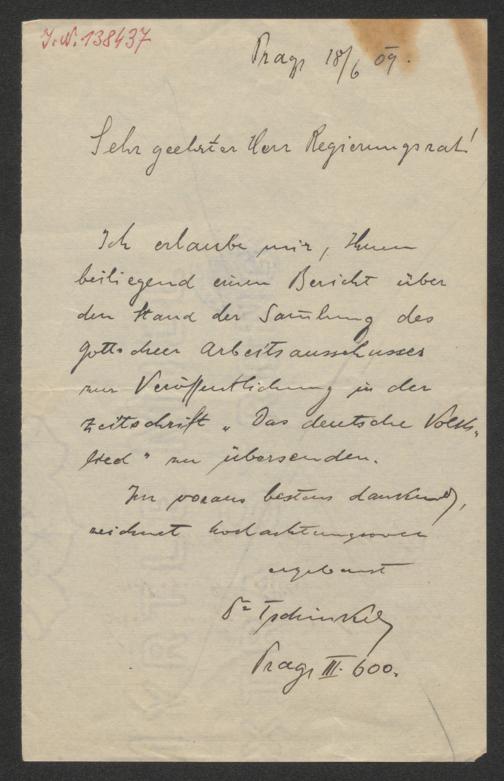 J.N. 138437
Prag, 18/6 09.
Sehr geehrter Herr Regierungsrat!
Ich erlaube mir, Ihnen
beiliegend einen Bericht über
den Stand der Sam̅lung des
Gottscheer Arbeitsausschusses
zur Veröffentlichung in der
Zeitschrift „Das deutsche Volks-
lied" zu übersenden.
Im voraus bestens dankend,
zeichnet hochachtungsvoll
ergebenst
Dr Tschinkel
Prag III. 600.